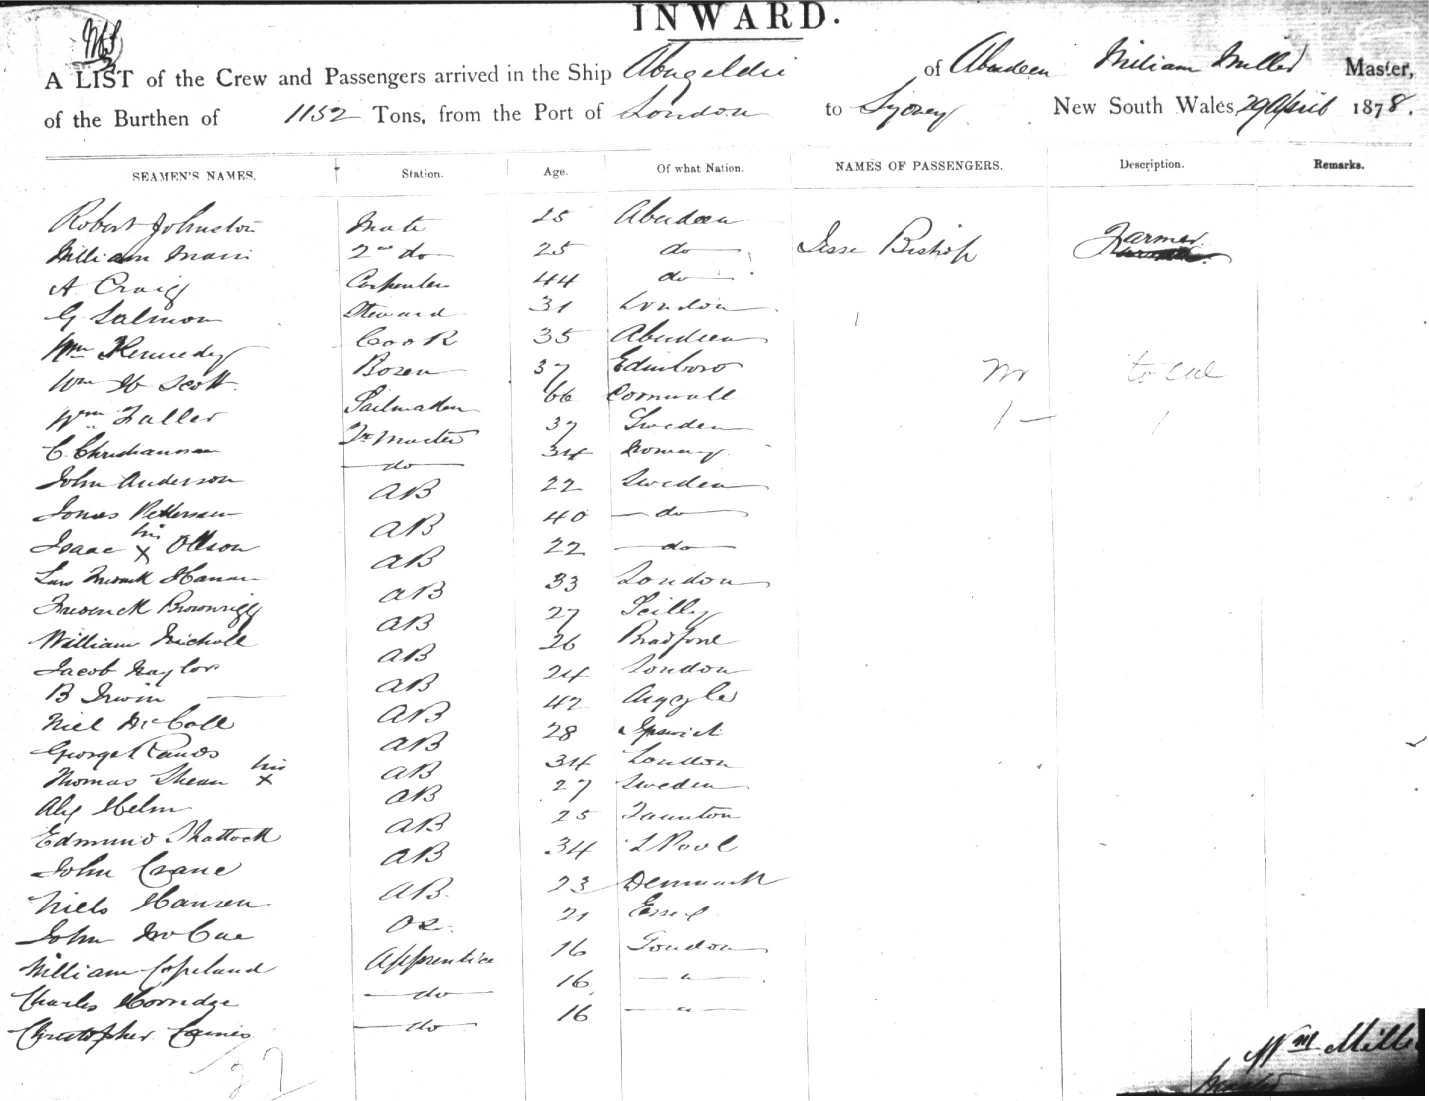 INWARD.
A LIST of the Crew and Passengers arrived in the Ship Abergeldie of Aberdeen William Miller Master,
of the Burthen of 1152 Tons, from the Port of London to Sydney New South Wales, 29 April 1878.
SEAMEN'S NAMES. Station. Age. Of what Nation. NAMES OF PASSENGERS. Description. Remarks.
Robert Johnston Mate 25 Aberdeen
William Mann 2nd do 25 do Jesse Bishop Farmer.
A. Craig Carpenter 44 do
G. Salmon Steward 31 London
Wm Kennedy Cook 35 Aberdeen
Wm H Scott Bosen 37 Edinboro
Wm Fuller Sailmaker 66 Cornwall
C. Christianson Qr Master 37 Sweden
John Anderson do 34 Norway
Jonas Petterson AB 22 Sweden
Isaac his X Ollson AB 40 do
Lars Hanson AB 22 do
Frederick Brownrigg AB 33 London
William Nicholl AB 27 Scilly
Jacob Naylor AB 26 Bradford
B Irwin AB 24 London
Niel McCall AB 42 Argyle
George Rands AB 28 Ipswich
Thomas Shean his X AB 34 London
Alex Helm AB 27 Sweden
Edmund Shattock AB 25 Taunton
John Crane AB 34 LPool
Niels Hansen AB. 23 Denmark
John McCue OS. 21 Essex
William Copeland Apprentice 16 London
Charles Horridge do 16 "
Christopher do 16 "
32
Wm Miller